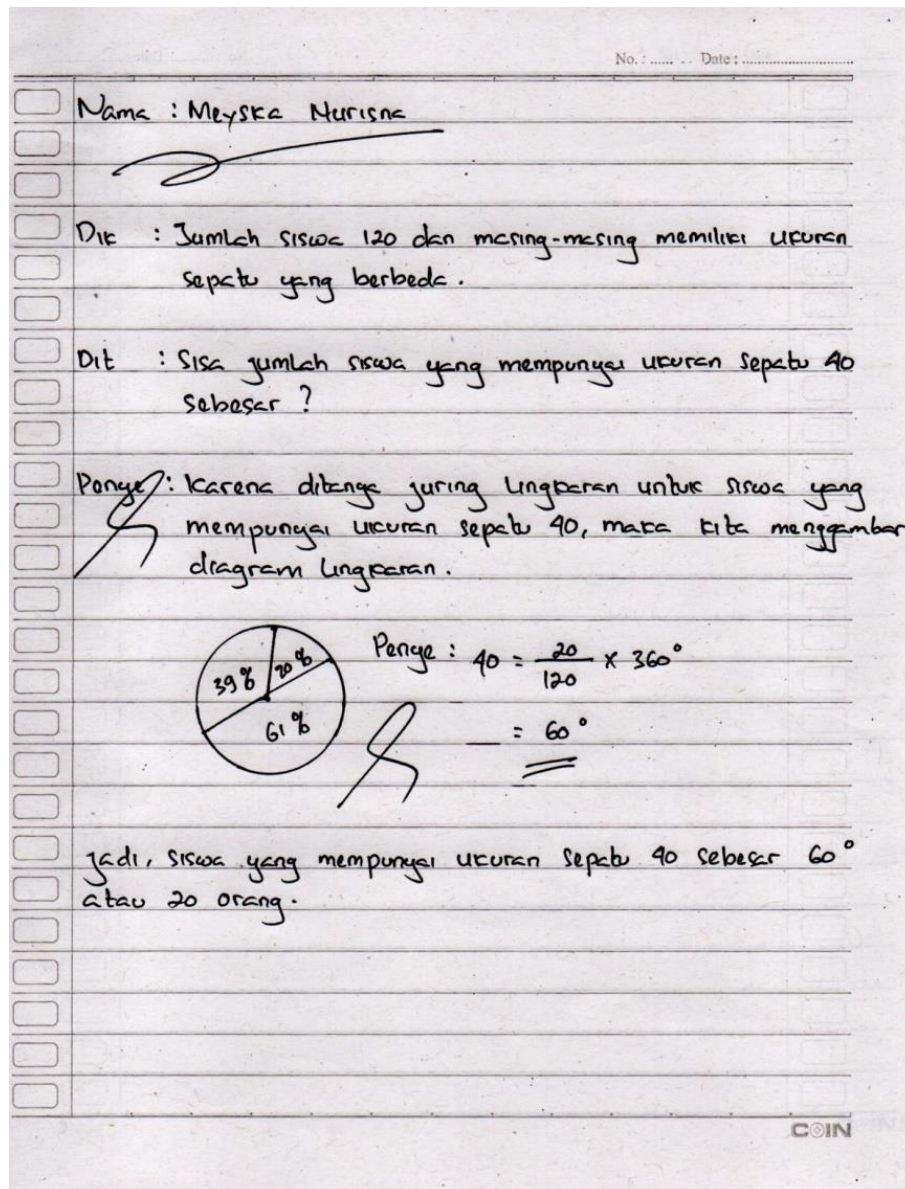 No. : ...... .. Date : ............................
Nama : Meyska Nurisna
Dik : Jumlah siswa 120 dan masing-masing memiliki ukuran
sepatu yang berbeda.
Dit : Sisa jumlah siswa yang mempunyai ukuran sepatu 40
sebesar ?
Penye : Karena ditanya juring lingkaran untuk siswa yang
mempunyai ukuran sepatu 40, maka kita menggambar
diagram lingkaran.
39 % 20 %
61 %
Penye : 40 = 20/120 x 360°
= 60°
Jadi, siswa yang mempunyai ukuran sepatu 40 sebesar 60°
atau 20 orang.
COIN